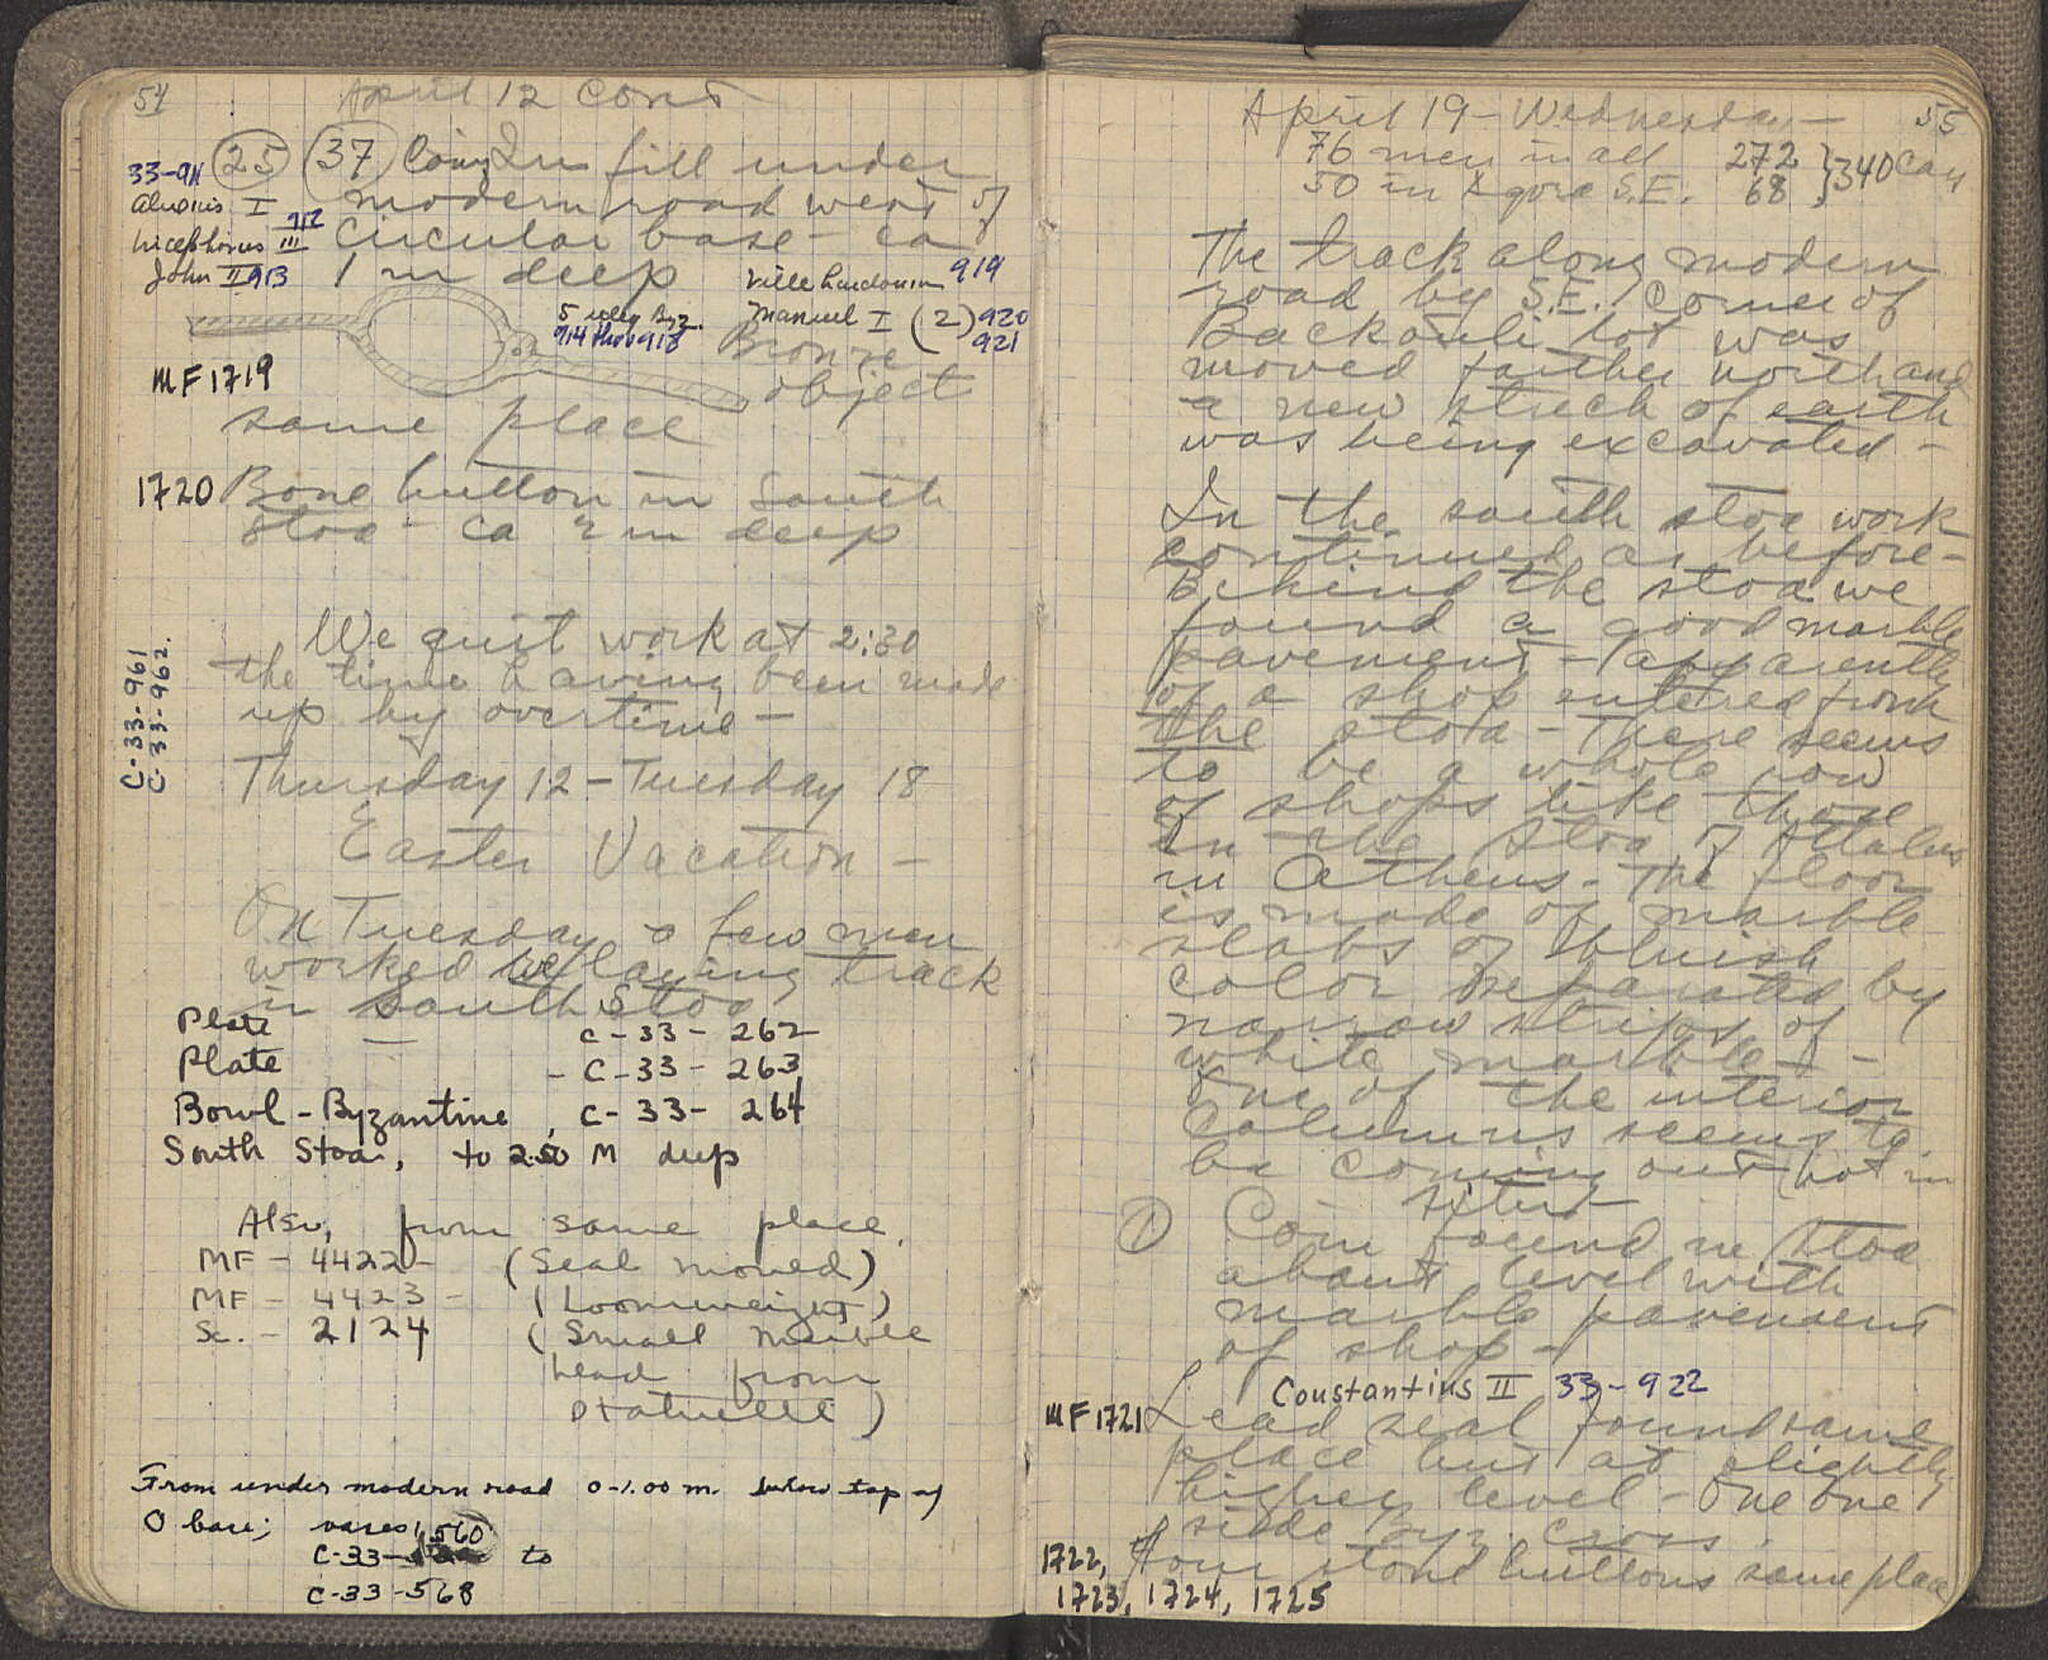 54
April 12 Cont
25 37 Coins In fill under
33-911
Alexius I modern road west of
Nicephorus III 912 circular base - ca
John II 913 1 m deep
Villehardouin 919
5 illeg Byz. Manuel I (2) 920
914 thru 918 921
Bronze
MF 1719 object
same place
1720 Bone button in South
Stoa - ca 2 m deep
We quit work at 2:30
the time having been made
up by overtime -
C-33-961
C-33-962.
Thursday 12 - Tuesday 18
Easter Vacation -
On Tuesday a few men
worked relaying track
in South Stoa
Plate - C-33-262
Plate - C-33-263
Bowl - Byzantine, C-33-264
South Stoa, to 2.50 M deep
Also, from same place.
MF - 4422 - (Seal moved)
MF - 4423 - (Loomweight)
Sc. - 2124 (Small marble
head from
statuette)
From under modern road 0-1.00 m. below top of
O base; vases, 560
C-33- to
C-33-568
55
April 19 - Wednesday -
76 men in all 272 } 340 cars
50 in Agora S.E. 68
The track along modern
road by S.E. corner of
Backouli lot was
moved farther north and
a new strech of earth
was being excavated -
In the south stoa work
continued as before -
Behind the stoa we
found a good marble
pavement - apparently
of a shop entered from
the stoa - There seems
to be a whole row
of shops like those
in the Stoa of Attalus
in Athens - The floor
is made of marble
slabs of bluish
color separated by
narrow strips of
white marble -
One of the interior
columns seems to
be coming out (not in
situ) -
1 Coin found in stoa
about level with
marble pavement
of shop -
Constantius II 33-922
MF 1721 Lead seal found same
place but at slightly
higher level - One one
side Byz. cross.
1722, Four stone buttons same place
1723, 1724, 1725